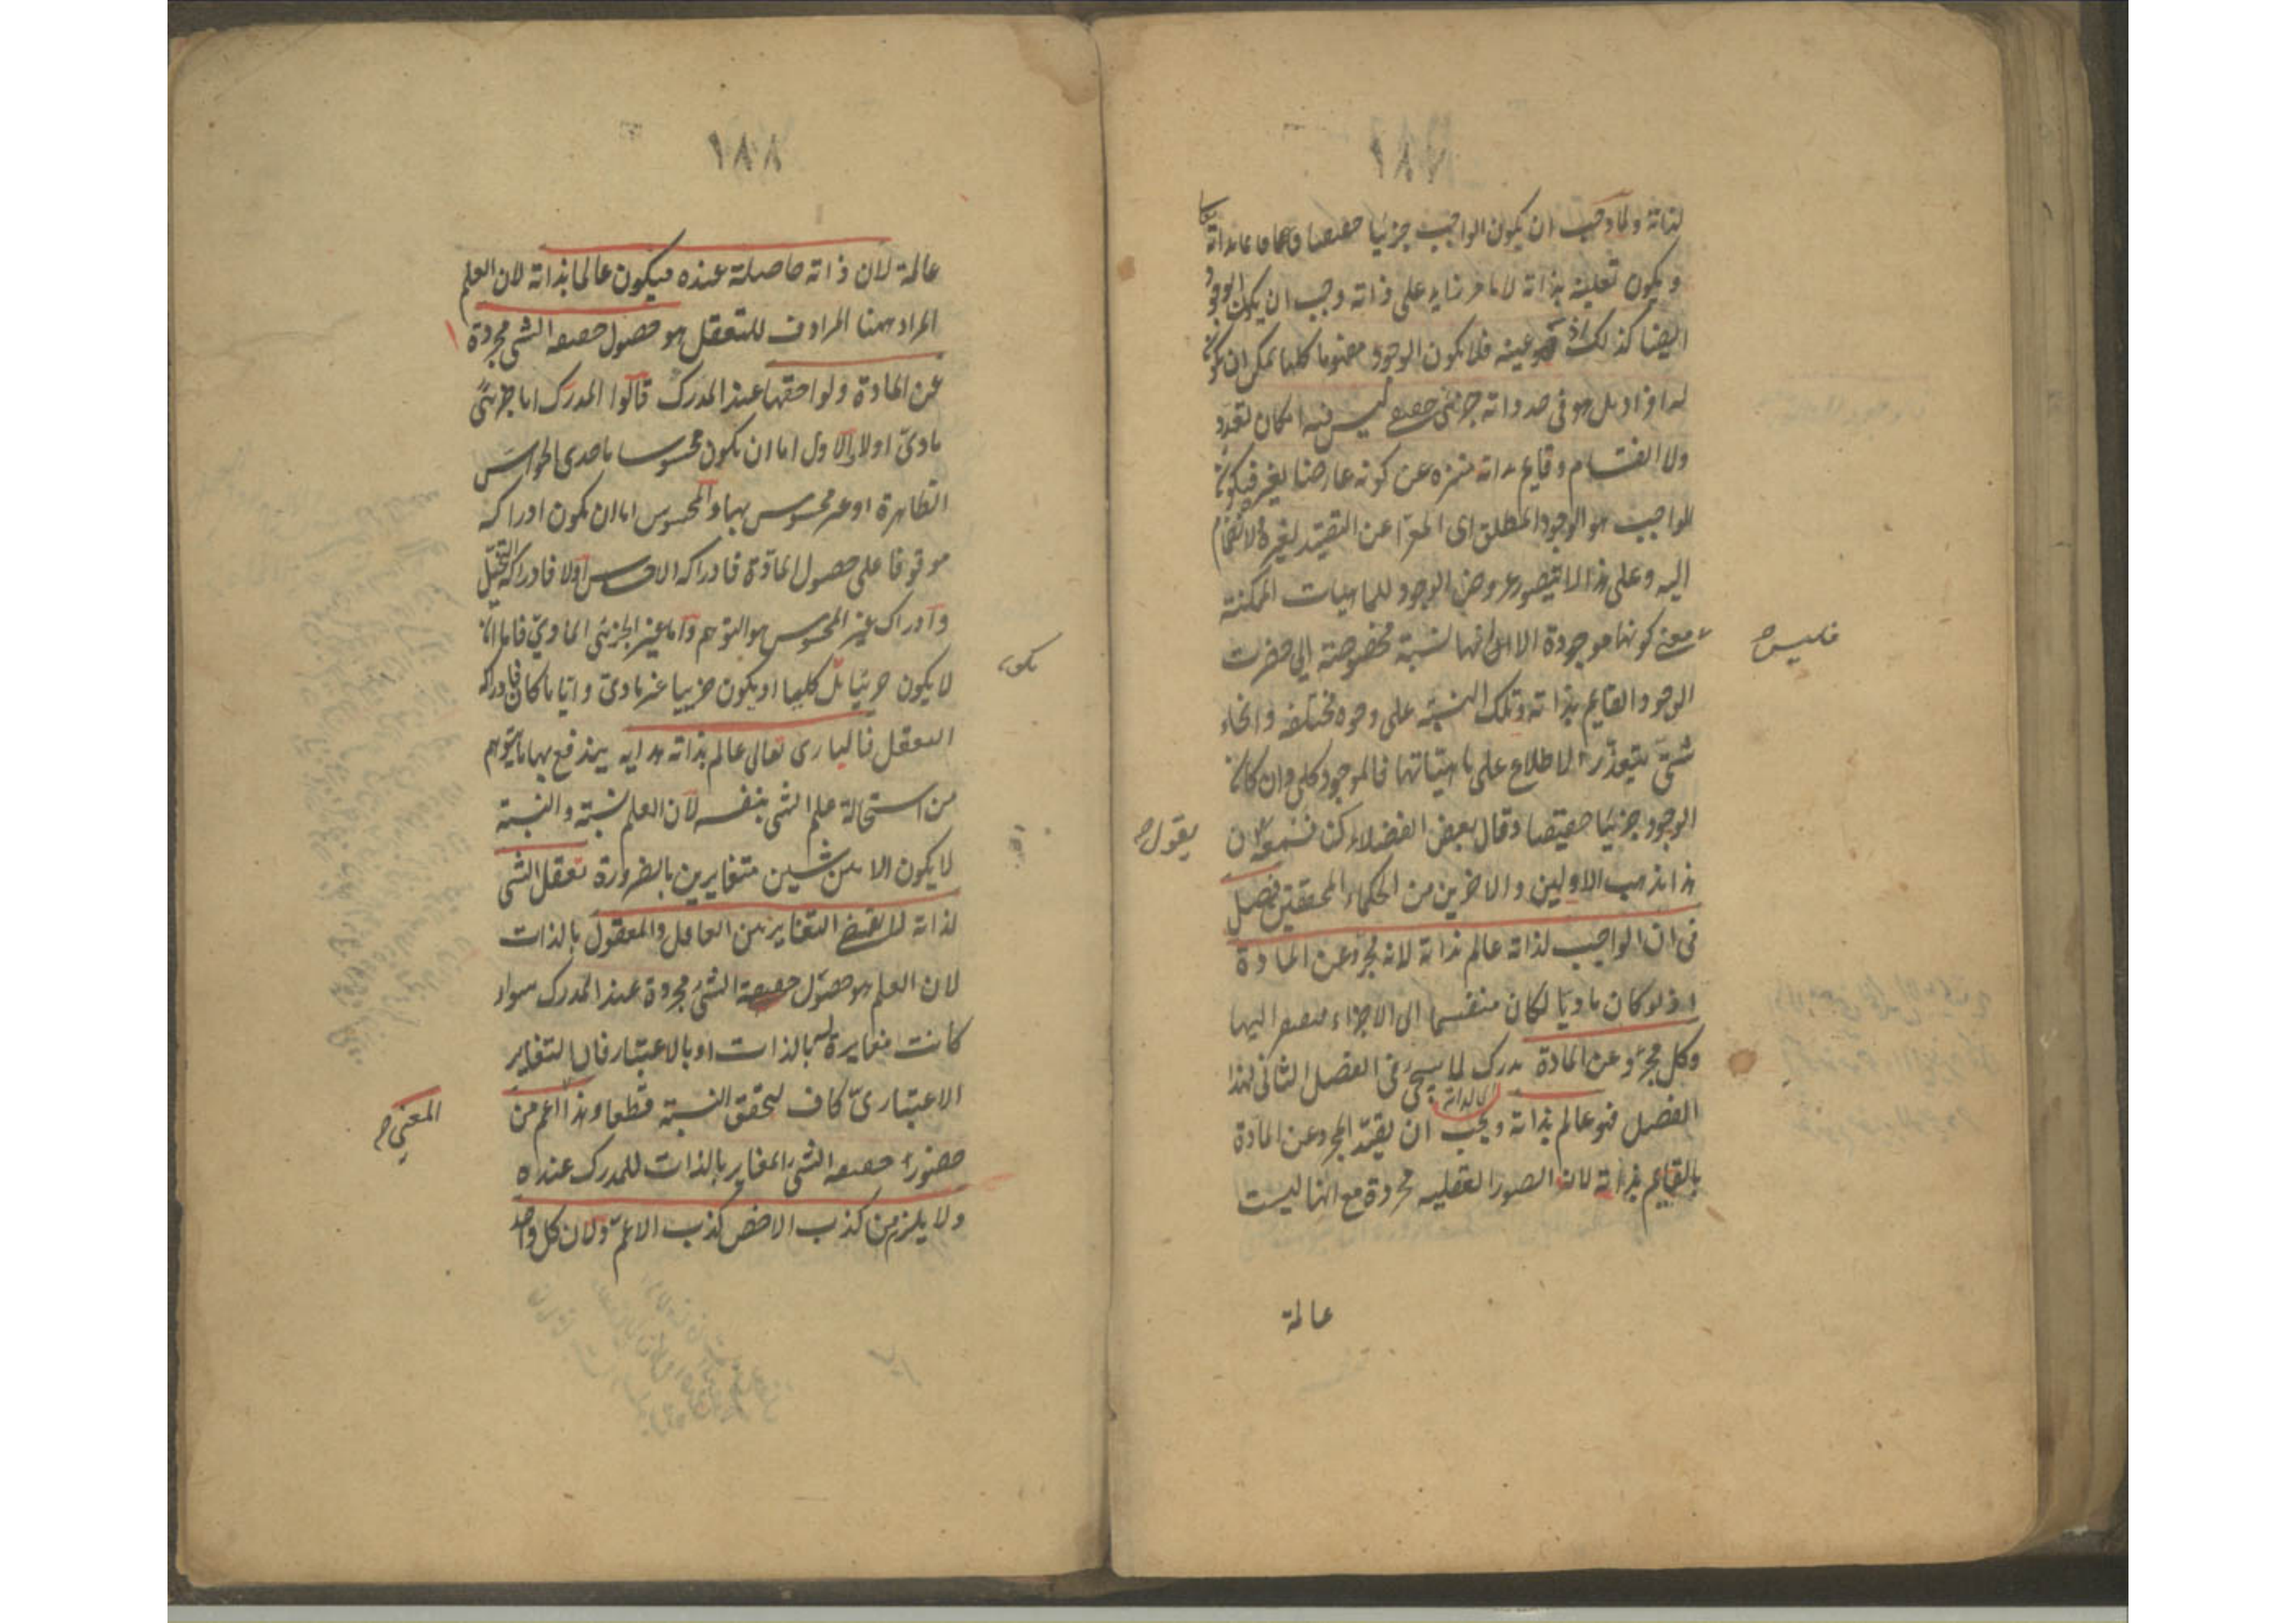 ١٨٧
لذاته ولما وجب ان يكون الواجب جزئيا حقيقيا قائما بذاته
ويكون تعينه بذاته لا بامر زايد على ذاته وجب ان يكون الوجود
ايضا كذلك اذ هو عينه فلا يكون الوجود مفهوما كليا يمكن ان يكون
له افراد بل هو فى حد ذاته جزئى حقيقى ليس فيه امكان تعدد
ولا انقسام وقايم بذاته منزه عن كونه عارضا لغيره فيكون
الواجب هو الوجود المطلق اى المعرّا عن التقييد لغيره والانضمام
اليه وعلى هذا لا يتصور عروض الوجود للماهيات الممكنة
فليس معنى كونها موجودة الا ان لها نسبة مخصوصة الى حضرت
الوجود القايم بذاته وتلك النسبة على وجوه مختلفة وانحاء
شتى يتعذر الاطلاع على ماهياتها فالموجود كلى وان كان
الوجود جزئيا حقيقيا وقال بعض الفضلاء كنا نسمعه يقول ان
هذا مذهب الاولين والاخرين من الحكماء المحققين فصل
فى ان الواجب لذاته عالم بذاته لانه مجرد عن المادة
اذ لو كان ماديا لكان منقسما الى الاجزاء مفتقرا اليها
وكل مجرد عن المادة مدرك لما سيجئ فى الفصل الثانى لهذا
الفصل فهو عالم بذاته ويجب ان يقيد المجرد عن المادة
بالقايم بذاته لان الصور العقليه مجردة مع انها ليست
عالمة
١٨٨
عالمة لان ذاته حاصلة عنده فيكون عالما بذاته لان العلم
المراد ههنا المرادف للتعقل هو حصول حقيقة الشئ مجردة
عن المادة ولواحقها عند المدرك قالوا المدرك اما جزئى
مادىّ اولا والاول اما ان يكون محسوسا باحدى الحواس
الظاهرة او غير محسوس بها والمحسوس اما ان يكون ادراكه
موقوفا على حصول المادّة فادراكه الاحساس اولا فادراكه التخيّل
وادراك غير المحسوس هو التوهم واما غير الجزئى المادى فاما ان
لا يكون جزئيا بل كليا او يكون جزئيا غير مادى وايا ما كان فادراكه
التعقل فالبارى تعالى عالم بذاته هدايه يندفع بها ما يتوهم
من استحالة علم الشئ بنفسه لان العلم نسبة والنسبة
لا يكون الا بين شيئين متغايرين بالضرورة تعقل الشئ
لذاته لا يقتضى التغاير بين العاقل والمعقول بالذات
لان العلم هو حصول حقيقة الشئ مجردة عند المدرك سواء
كانت مغايرة له بالذات او بالاعتبار فان التغاير
الاعتبارىّ كاف لتحقق النسبة قطعا وهذا المعنى اعم من
حضور حقيقة الشئ المغاير بالذات للمدرك عنده
ولا يلزم من كذب الاخص كذب الاعم ولان كل واحد